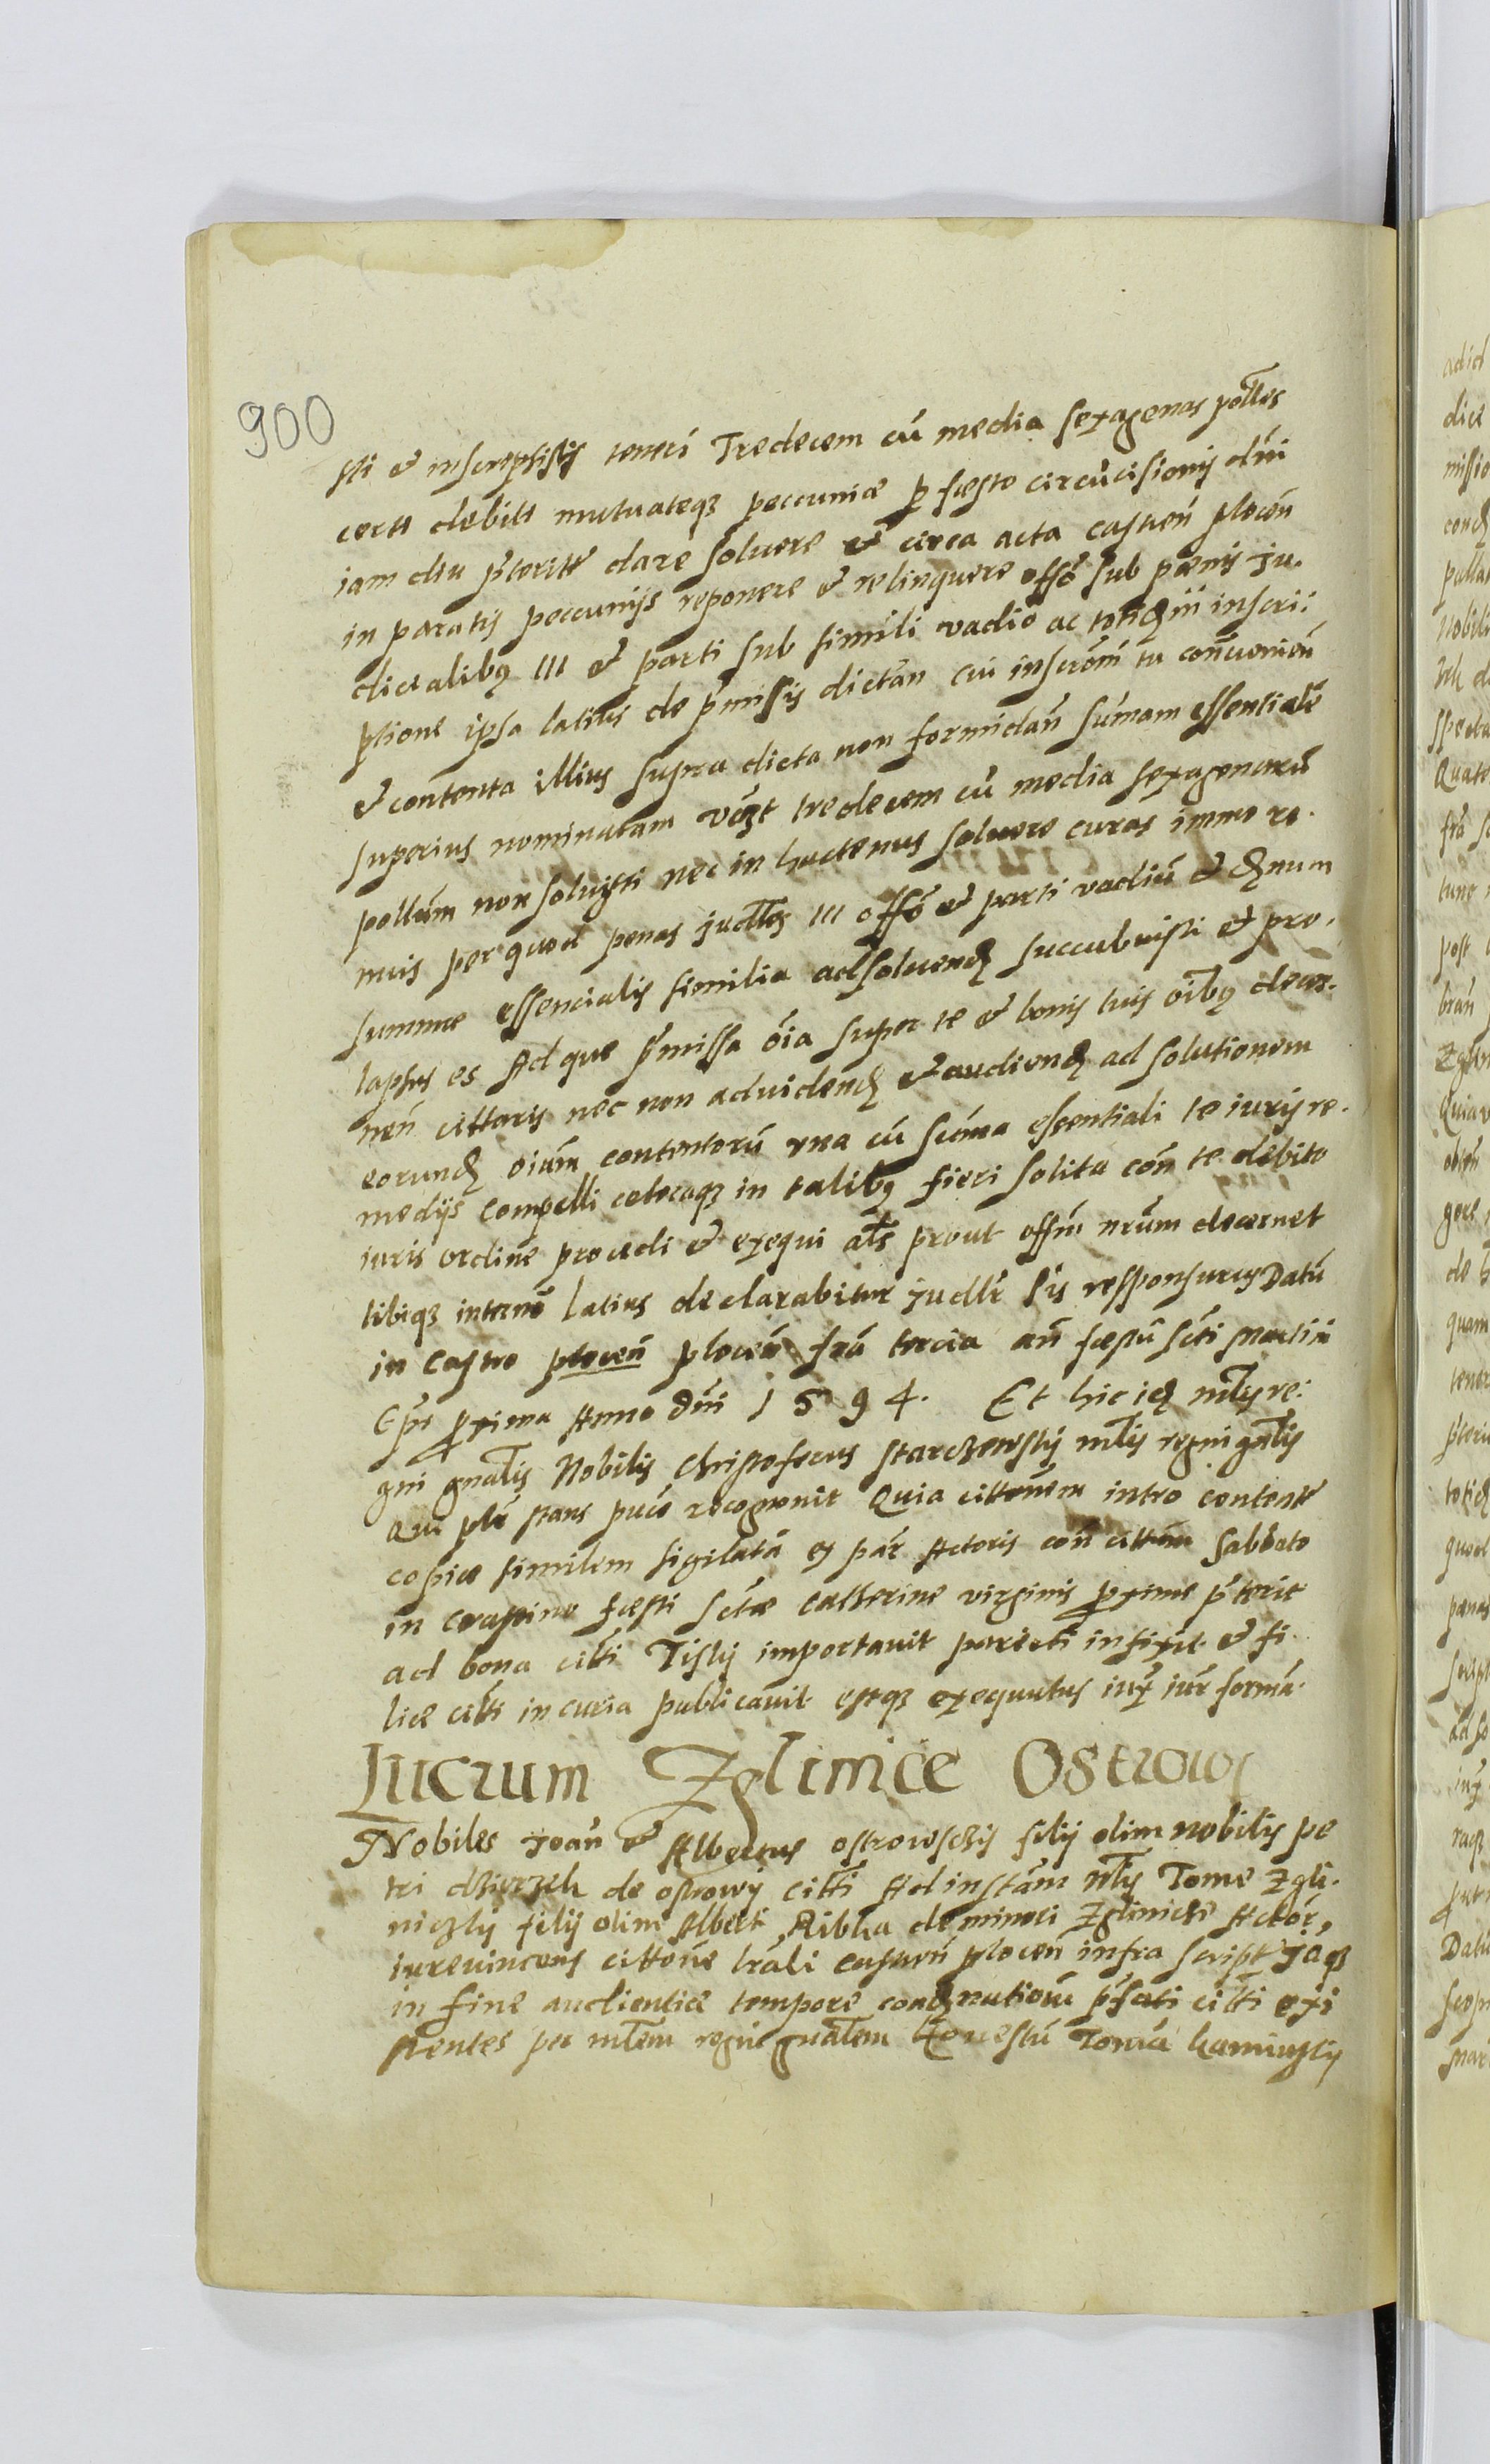 900
sti et inscripsistis teneri Tredecem cũ media sexagenas polles
certi debiti mutuateqз peccuniæ p festo circũcisionis dñi
iam diu pͬterite dare soluere et circa acta castren̄ plocen̄
in paratis peccunijs reponere et relinquere offō sub pænis ju.
dicialibꝫ III et parti sub simili vadio ac totidꝫ in inscri:
ptione ipsa latius de pͬmissis dictan cui inscrōm tu conuenien̄
et contenta illius supra dicta non formidan̄ sũmam essentialē
superius nominatam vꝫt tredecem cũ media sexagenarũ
pollūm non soluisti nec in hactenus soluere curas immo re.
nuis per quod penas judlles III offō et parti vadiũ et dꝫnum
summæ essencialis similia ad soluendꝫ succubuisti et pro.
lapsus es Ad que pͬmissa oīa super te et bonis tuis oībꝫ decer.
nen̄ cittaris nec non ad videndꝫ et audiendꝫ ad solutionem
eorundꝫ oiūm contentorũ vna cũ sũma essentiali te iuris re.
medijs compelli ceteraqз in talibꝫ fieri solita con̄ te debito
iuris ordine procedi et exequi als prout offm̄ nrūm decernet
tibiqз in terno latius declarabitur judllr sis responsurus Datũ
in castro plocen̄ plocen̄ fra tercia an̄ festũ scti Martini
Epi pxima Anno dñi 1594. Et hic idꝫ mlis re:
gni gnalis Nobilis Christoferus Starczewskij mlis regni gnalis
Qui ple stans puce recognouit Quia cittonem intro contente
copiæ similem sigilatã ex par Actoris con̄ cittum Sabbato
in crastino festi sctæ Catherine virginis pxime pͬterit
ad bona citti Tiskij importauit parieti infixit et fi
liæ citti in curia publicauit estqз exequutus iuxͭ iur formã.
Lucrum Zglinice Ostrow
Nobiles Joan̄ et Albertus ostrowsckij filij olim nobilis pe
tri dzierzek de ostrowij citti Ad instam̄ nlis Tome Zgli.
niczkij filij olim Alberti Ribka de minori Zglinicze Actor,
iureuincens cittone lrali castren̄ plocen̄ infra script jaqз
in fine audientiæ tempore condꝫnationū pͬfati citti exi
stentes per mlem regni gnalem Honestũ Tomã kaminskij